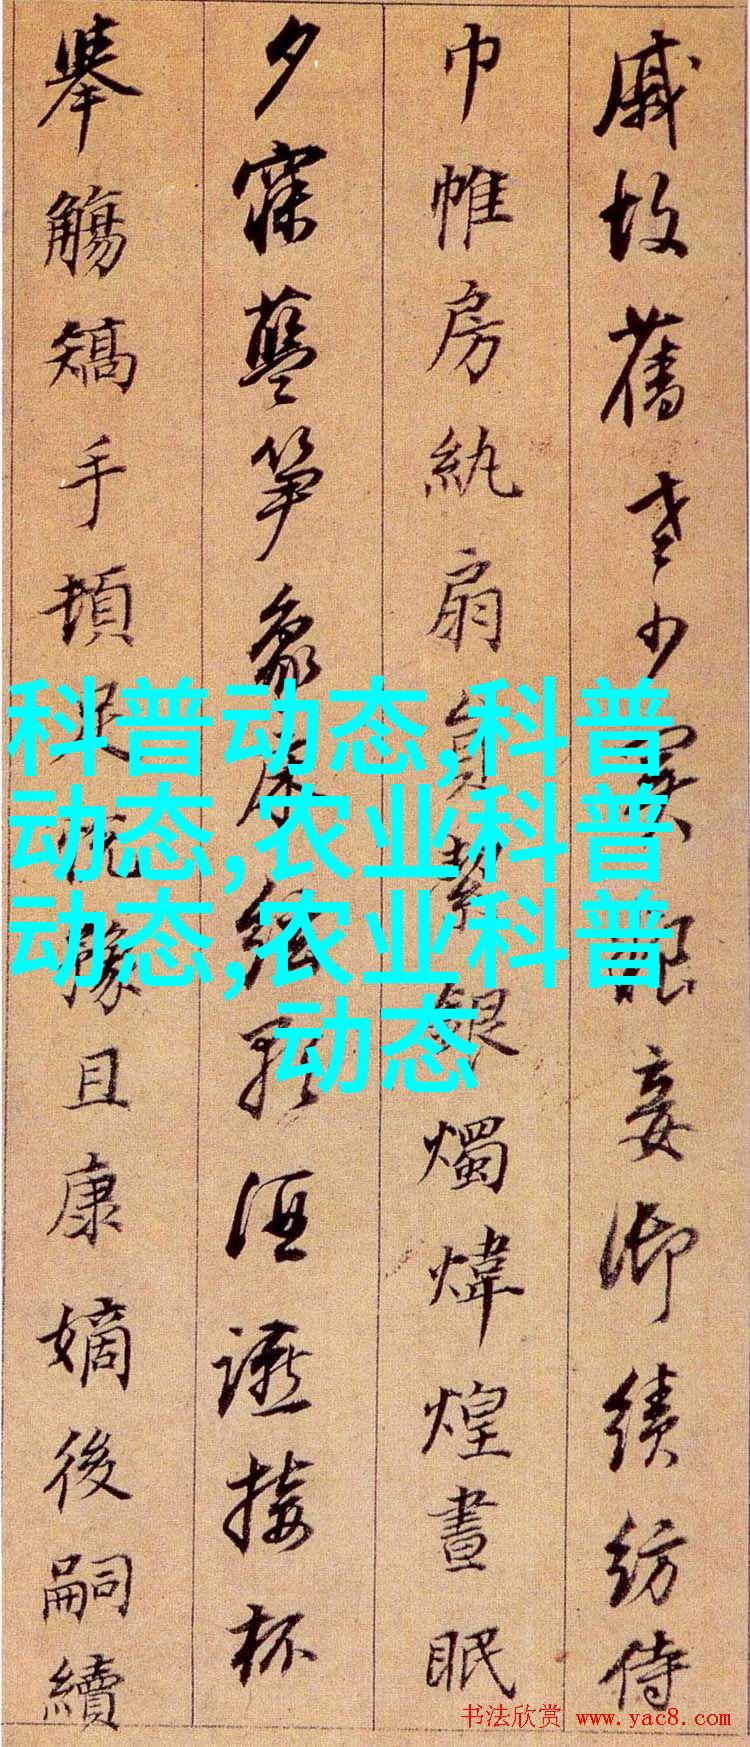 戚故舊老少異粮妾御績紡侍
巾帷房紈扇員絜銀燭煒煌晝眠
夕寐藍笋象床絃歌酒讌接杯
舉觴矯手頓足悅豫且康嫡後嗣續
科普动态,科普
动态,农业科普
动态,农业科普
动态
书法欣赏 www.yac8.com